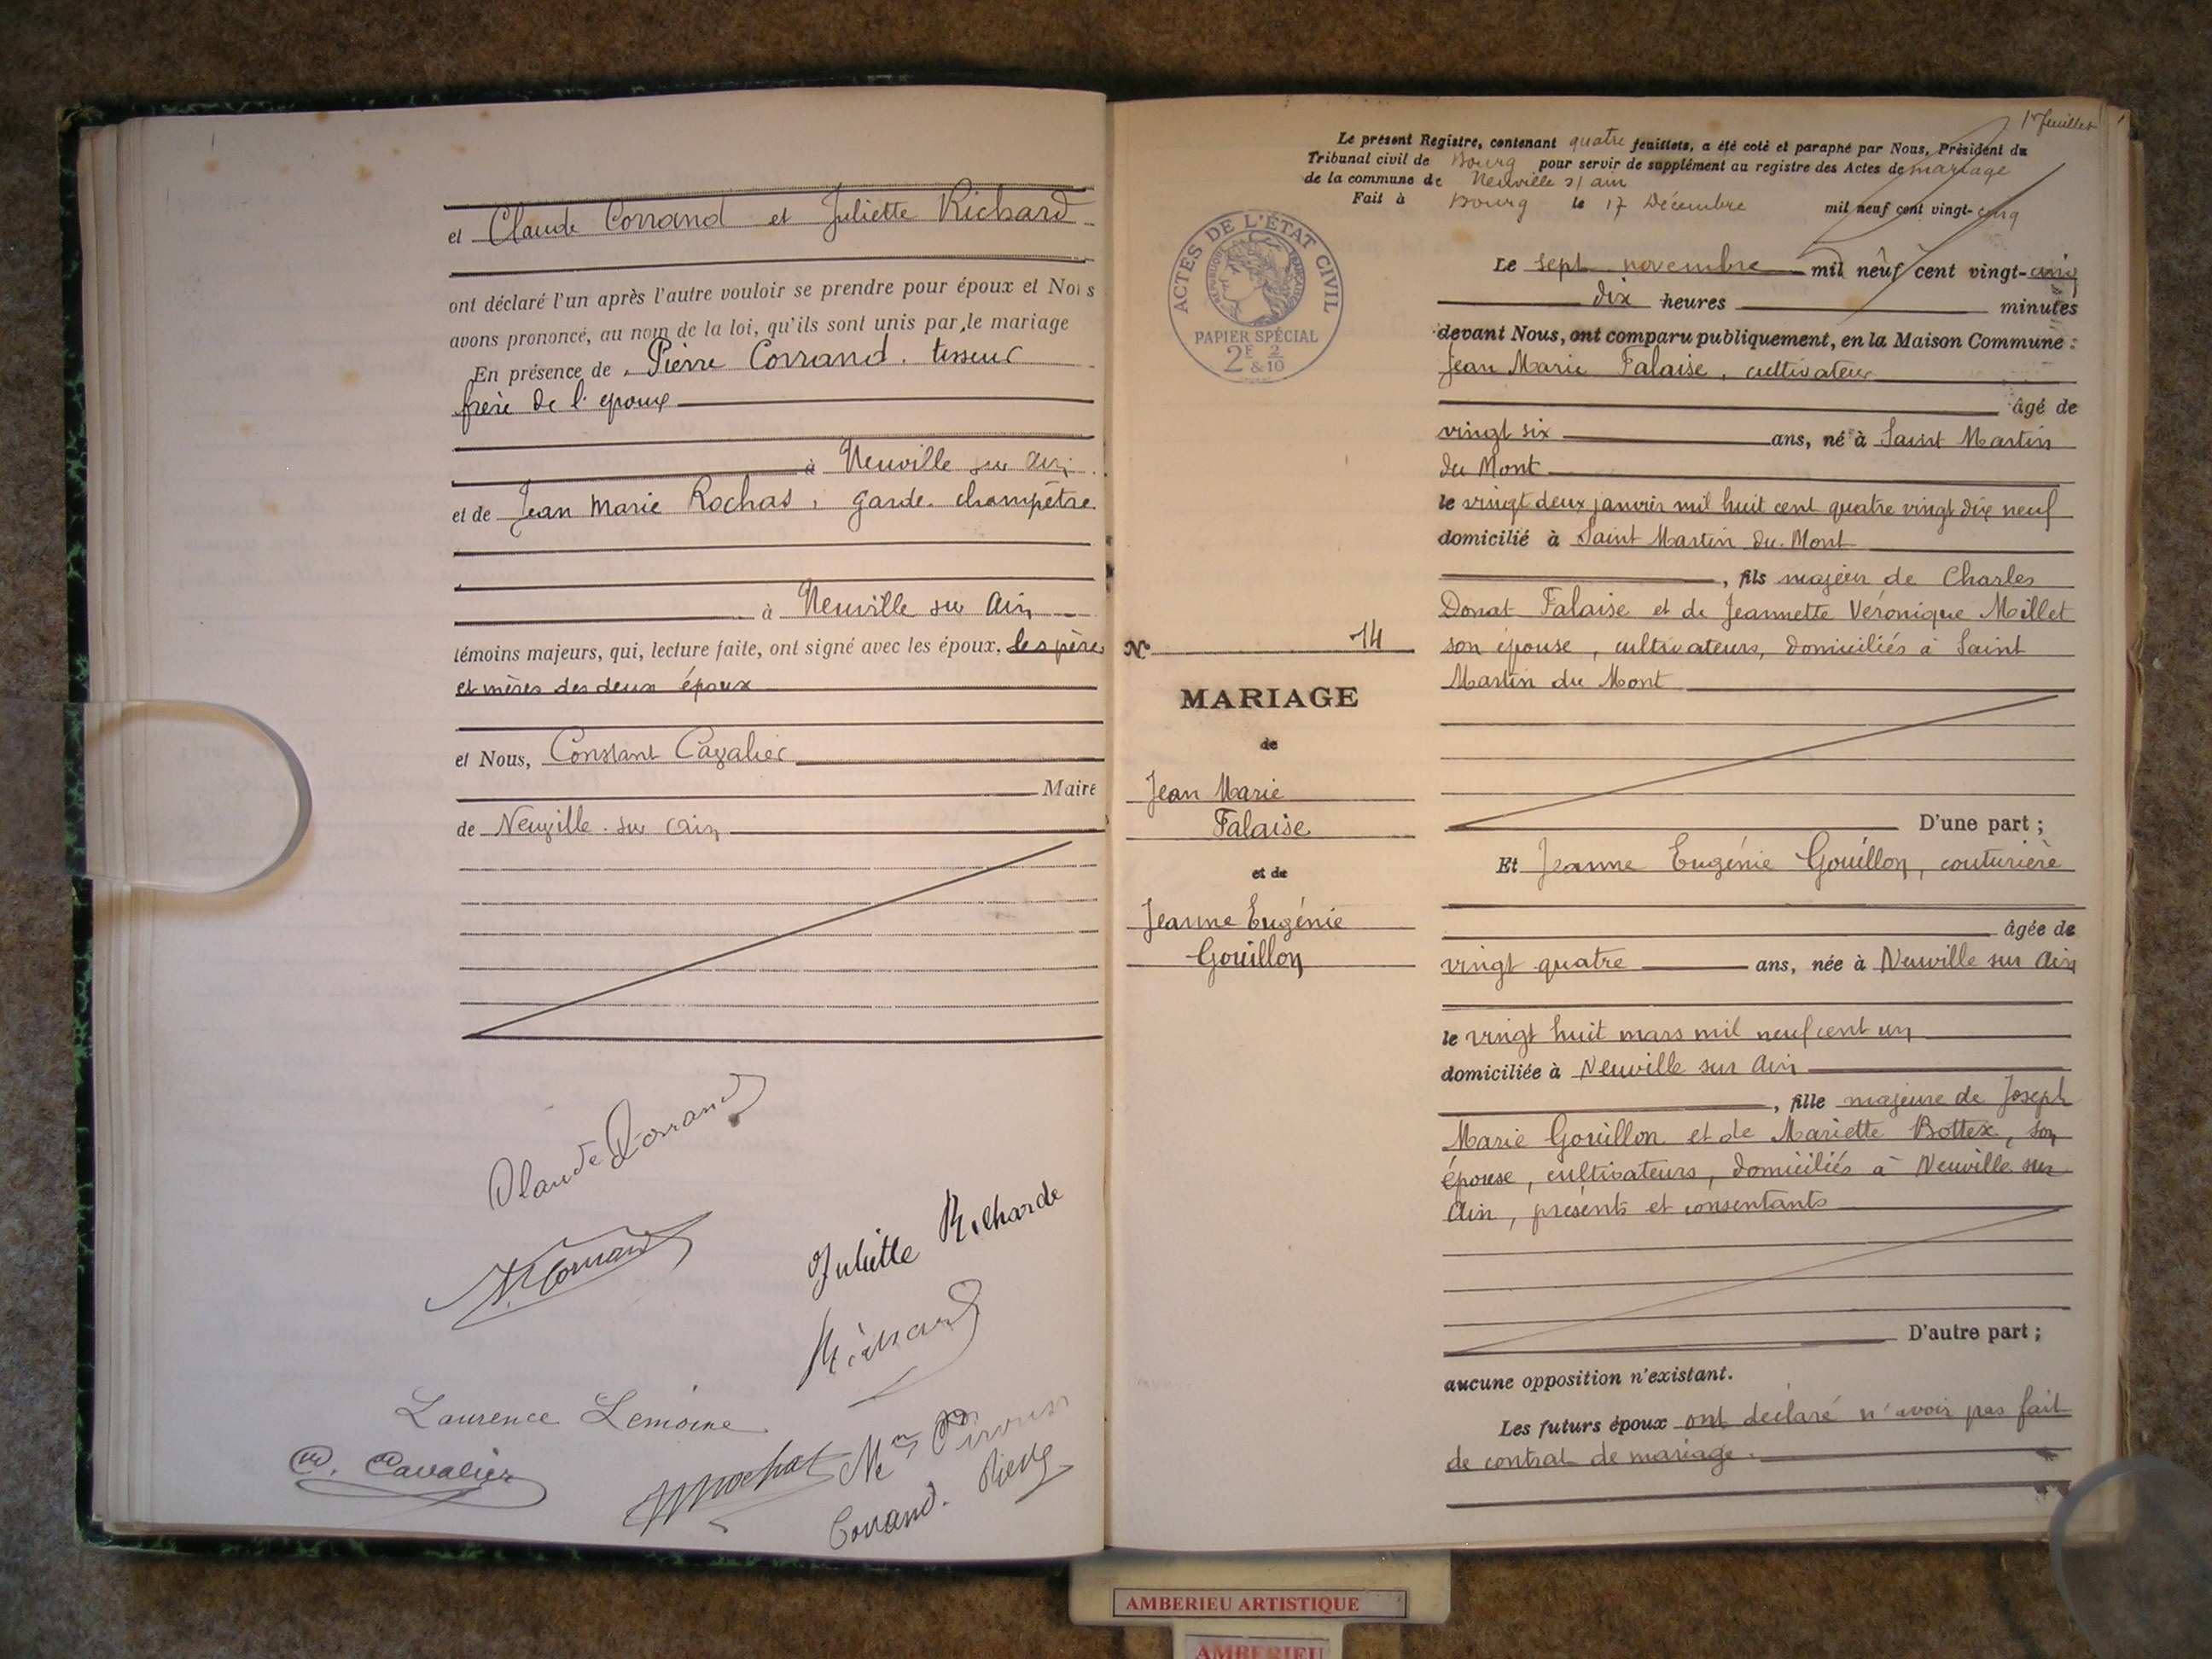 et Claude Corrand et Juliette Richard
ont déclaré l'un après l'autre vouloir se prendre pour époux et Nous
avons prononcé, au nom de la loi, qu'ils sont unis par le mariage
En présence de Pierre Corrand. tisseur
frère de l'époux
à Neuville sur Ain
et de Jean Marie Rochas, garde-champêtre
à Neuville sur Ain
témoins majeurs, qui, lecture faite, ont signé avec les époux, les pères
et mères des deux époux
et Nous, Constant Cavalier
Maire
de Neuville-sur Ain
Claude Corrand
Corrand
Juliette Richarde
Richard
Laurence Lemoine
Cavalier
Rochat
Corrand. Pierre
1er feuillet
Le présent Registre, contenant quatre feuillets, a été coté et paraphé par Nous, Président du
Tribunal civil de Bourg pour servir de supplément au registre des Actes de mariage
de la commune de Neuville s/ ain
Fait à Bourg le 17 Décembre mil neuf cent vingt-cinq
ACTES DE L'ÉTAT CIVIL
RÉPUBLIQUE FRANÇAISE
PAPIER SPÉCIAL
2F & 2/10
Le sept novembre mil neuf cent vingt-cinq
dix heures minutes
devant Nous, ont comparu publiquement, en la Maison Commune :
Jean Marie Falaise, cultivateur
âgé de
vingt six ans, né à Saint Martin
du Mont
le vingt deux janvier mil huit cent quatre vingt dix neuf
domicilié à Saint Martin du Mont
, fils majeur de Charles
Donat Falaise et de Jeannette Véronique Millet
son épouse, cultivateurs, domiciliés à Saint
Martin du Mont
D'une part ;
N° 14
MARIAGE
de
Jean Marie
Falaise
et de
Jeanne Eugénie
Gouillon
Et Jeanne Eugénie Gouillon, couturière
âgée de
vingt quatre ans, née à Neuville sur Ain
le vingt huit mars mil neuf cent un
domiciliée à Neuville sur Ain
, fille majeure de Joseph
Marie Gouillon et de Mariette Bottex, son
épouse, cultivateurs, domiciliés à Neuville sur
Ain, présents et consentants
D'autre part ;
aucune opposition n'existant.
Les futurs époux ont déclaré n'avoir pas fait
de contrat de mariage.
AMBERIEU ARTISTIQUE
AMBERIEU